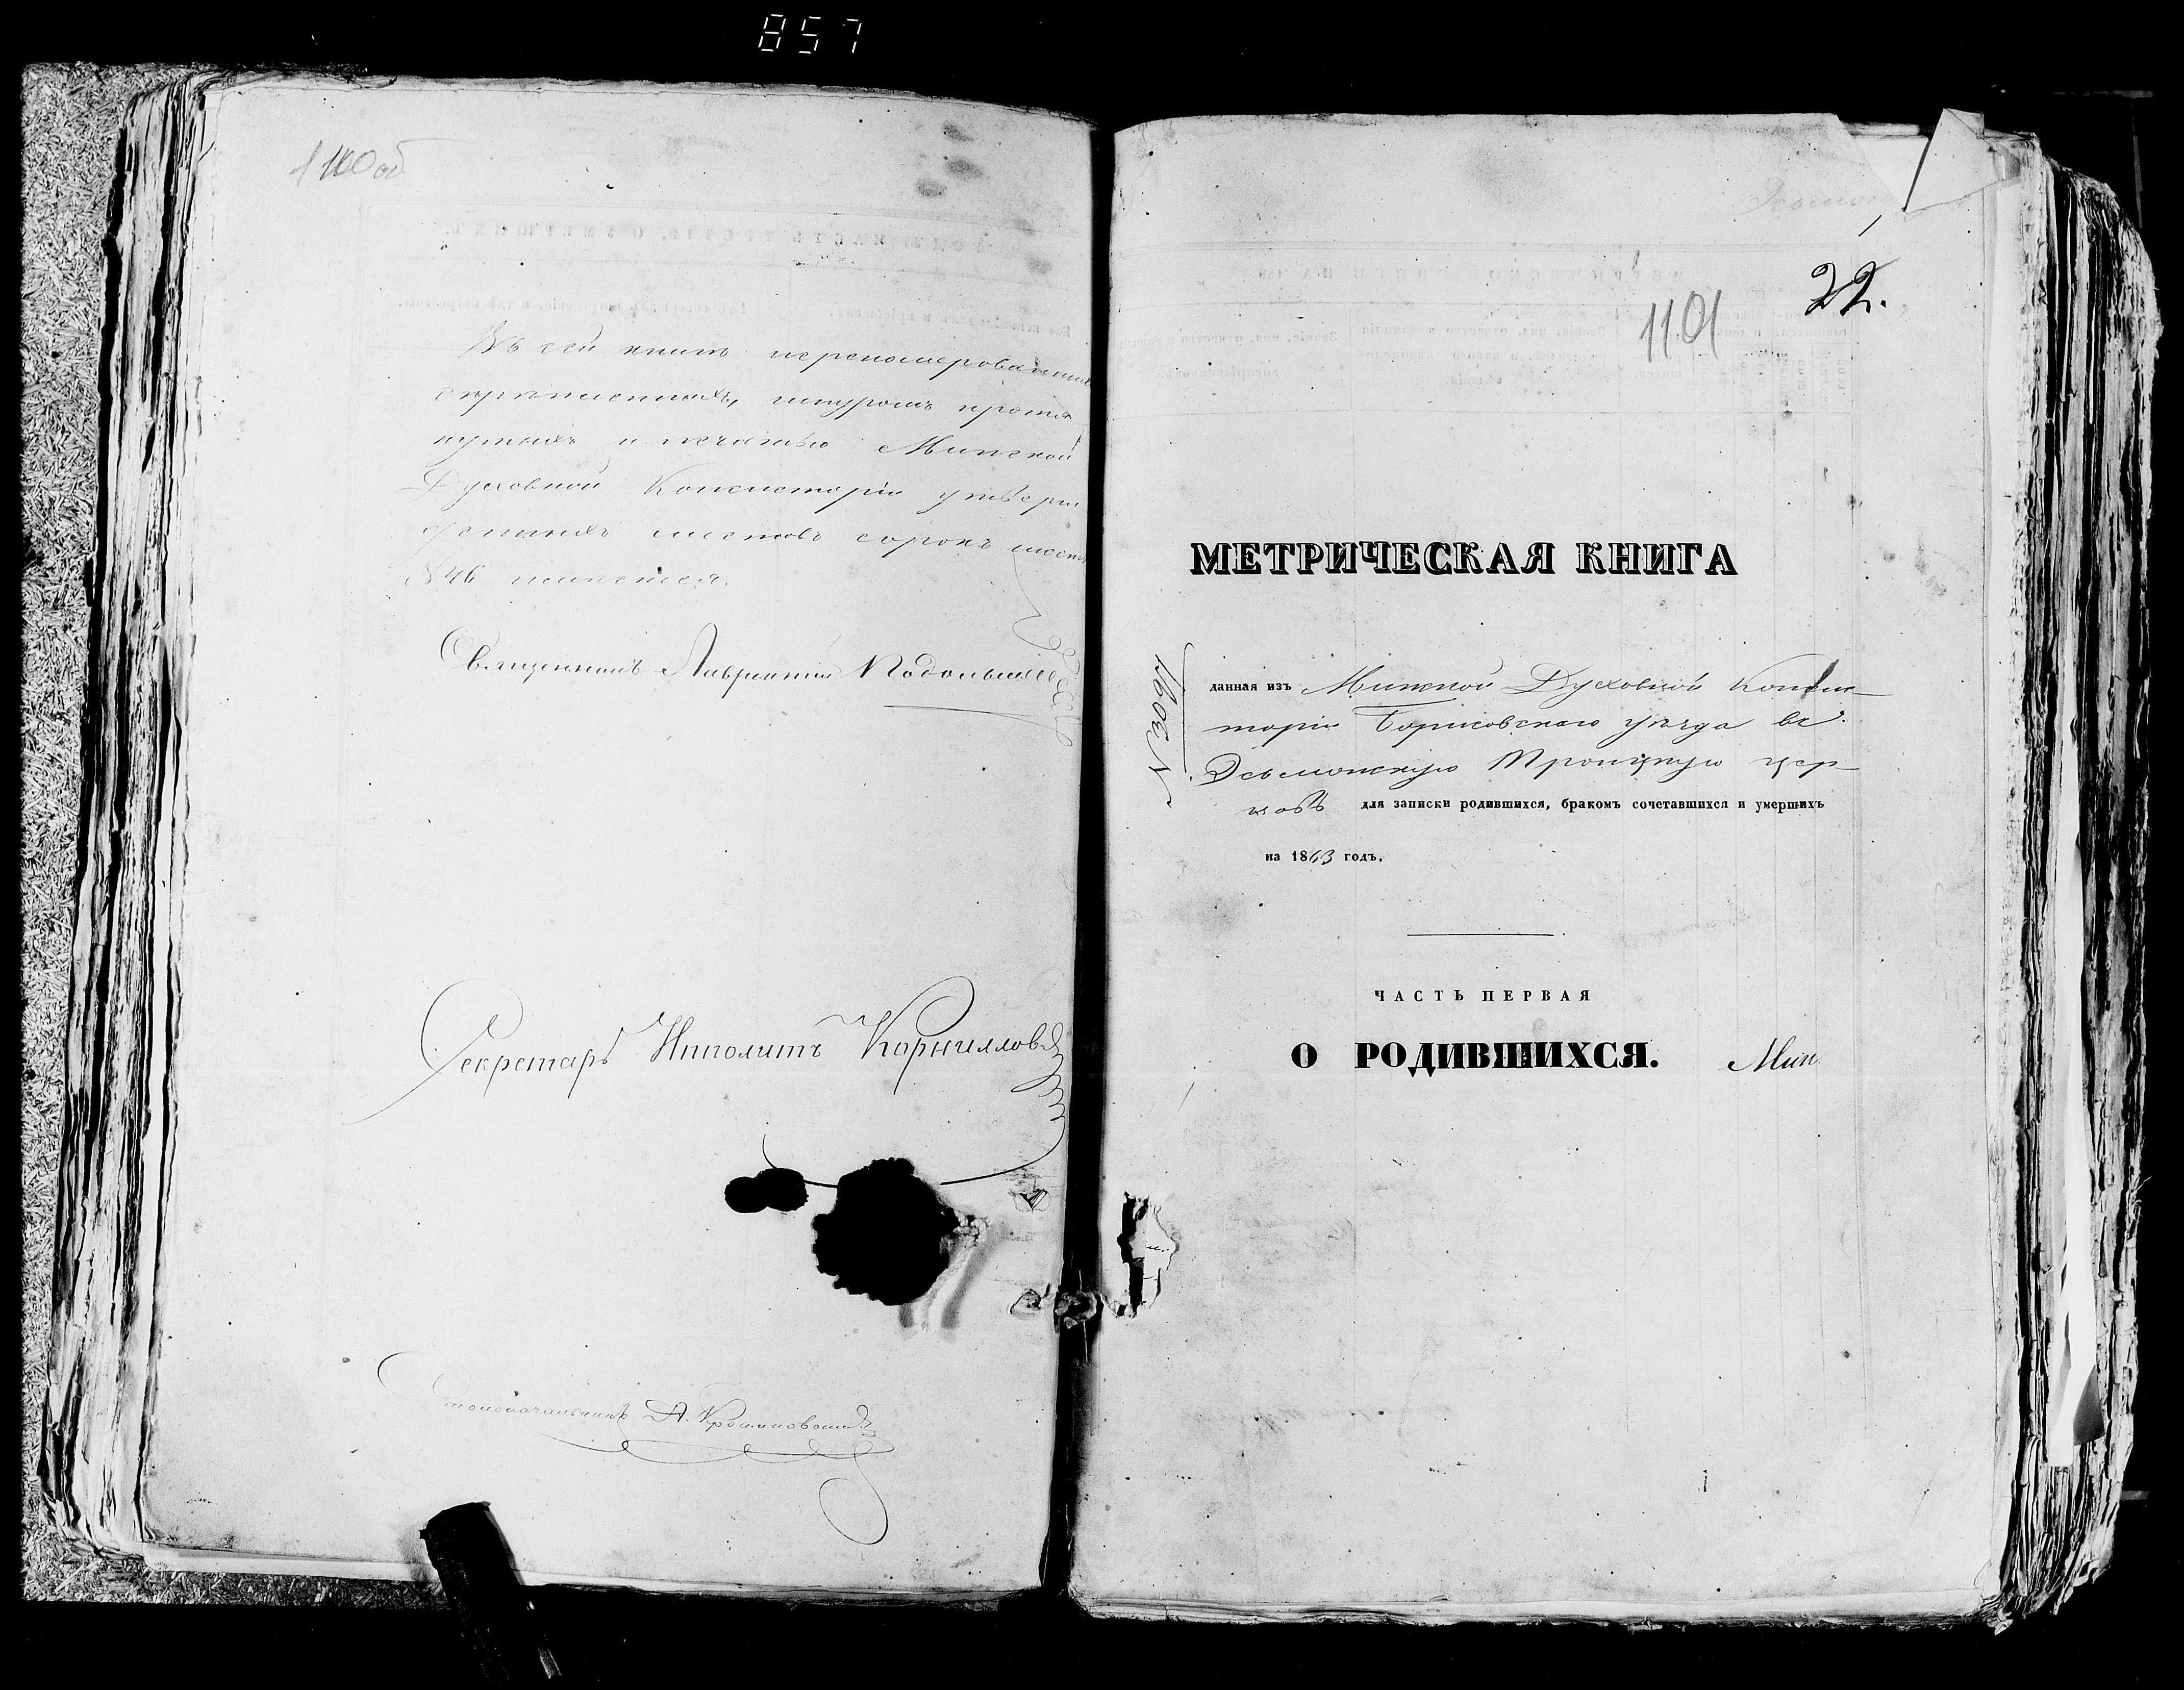 857
1100 об
Въ сей книгѣ перенумерованныхъ
скрѣпленныхъ, шнуромъ протя
нутыхъ и печатью Минской
Духовной Консисторіи утвер
жденныхъ листовъ сорокъ шесть
№ 46 имѣется.
Священникъ Лаврентій
Секретарь Ипполитъ Корниллов
Столоначальникъ А.
22.
1101
МЕТРИЧЕСКАЯ КНИГА
данная изъ Минской Духовной Консис-
торіи Борисовскаго уѣзда въ
Троицкую цер-
ковь для записки родившихся, бракомъ сочетавшихся и умершихъ
на 1863 годъ.
ЧАСТЬ ПЕРВАЯ
О РОДИВШИХСЯ. Мин